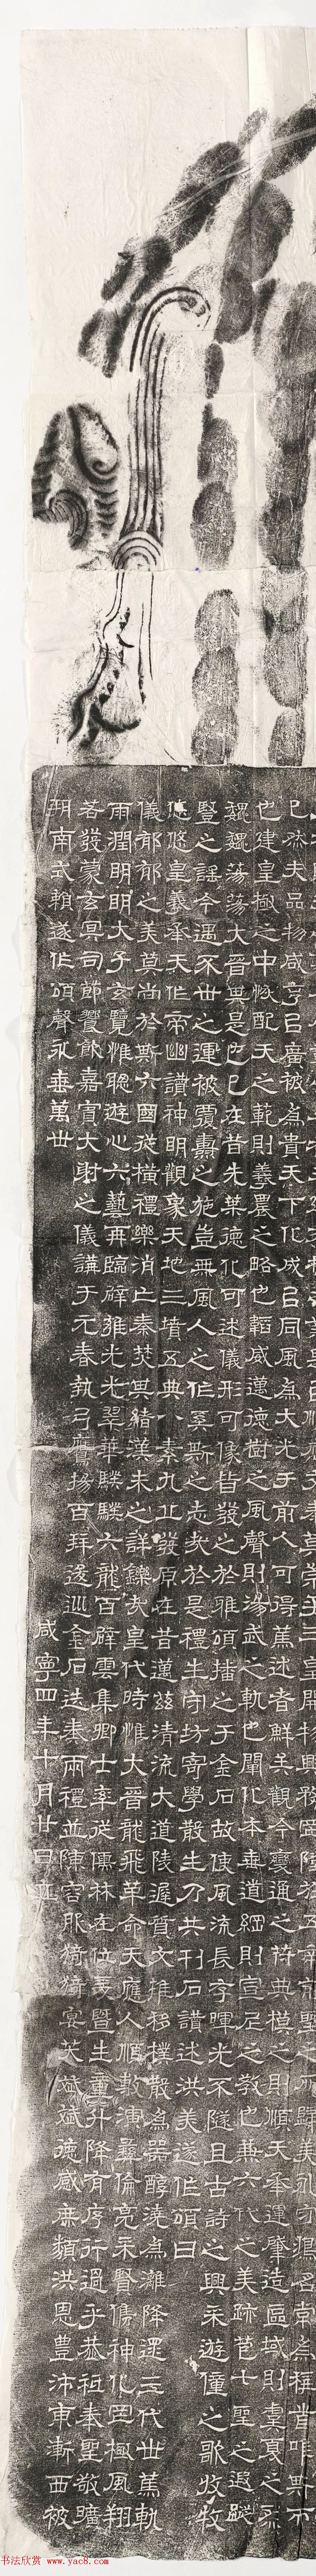 已然夫品物咸亨㠯廣被為貴天下化成㠯同風為大光于前人可得蕉述者鮮矣觀今變通之符典模之則順天承運肇造區域則虞夏之烝
也建皇極之中恢配天之範則羲農之略也韜威邁德樹之風聲則湯武之軌也闡化本垂道綱則宣尼之教也兼六代之美跡苞七聖之遐蹤
巍巍蕩蕩大晉其是已已在昔先業德化可述儀形可像皆發之於雅頌播之于金石故使風流長孚暉光不隧且古詩之興采遊僮之歌收牧
豎之謠今遇不世之運被覆燾之施豈無風人之作奚斯之志哉於是禮生守坊寄學散生乃共刊石讚述洪美遂作頌曰
悠悠皇羲承天作帝幽讚神明觀象天地三墳五典八索九丘發原在昔邁茲清流大道陵遲質文推移樸散為器醇澆為灕降逮三代世篤軌
儀郁郁之美莫尚於斯六國從橫禮樂消亡秦焚其緒漢未之詳鑠哉皇代時惟大晉龍飛革命天應人順敷演彝倫亮采賢儁神化罔極風翔
雨潤明明大子玄覽惟聰遊心六藝再臨辟雍光光翠華騤騤六飛百辟雲集卿士率從儒林在位爰暨生童升降有序行過乎恭祗奉聖敬曠
若發蒙玄冥司節饗飲嘉賓大射之儀講于元春執弓鷹揚百拜逡巡金石迭奏兩禮並陳容服猗猗宴笑斌斌德感庶類洪恩豊沛東漸西被
朔南式賴遂作頌聲永垂萬世
咸寧四年十月廿日立
书法欣赏 www.yac8.com